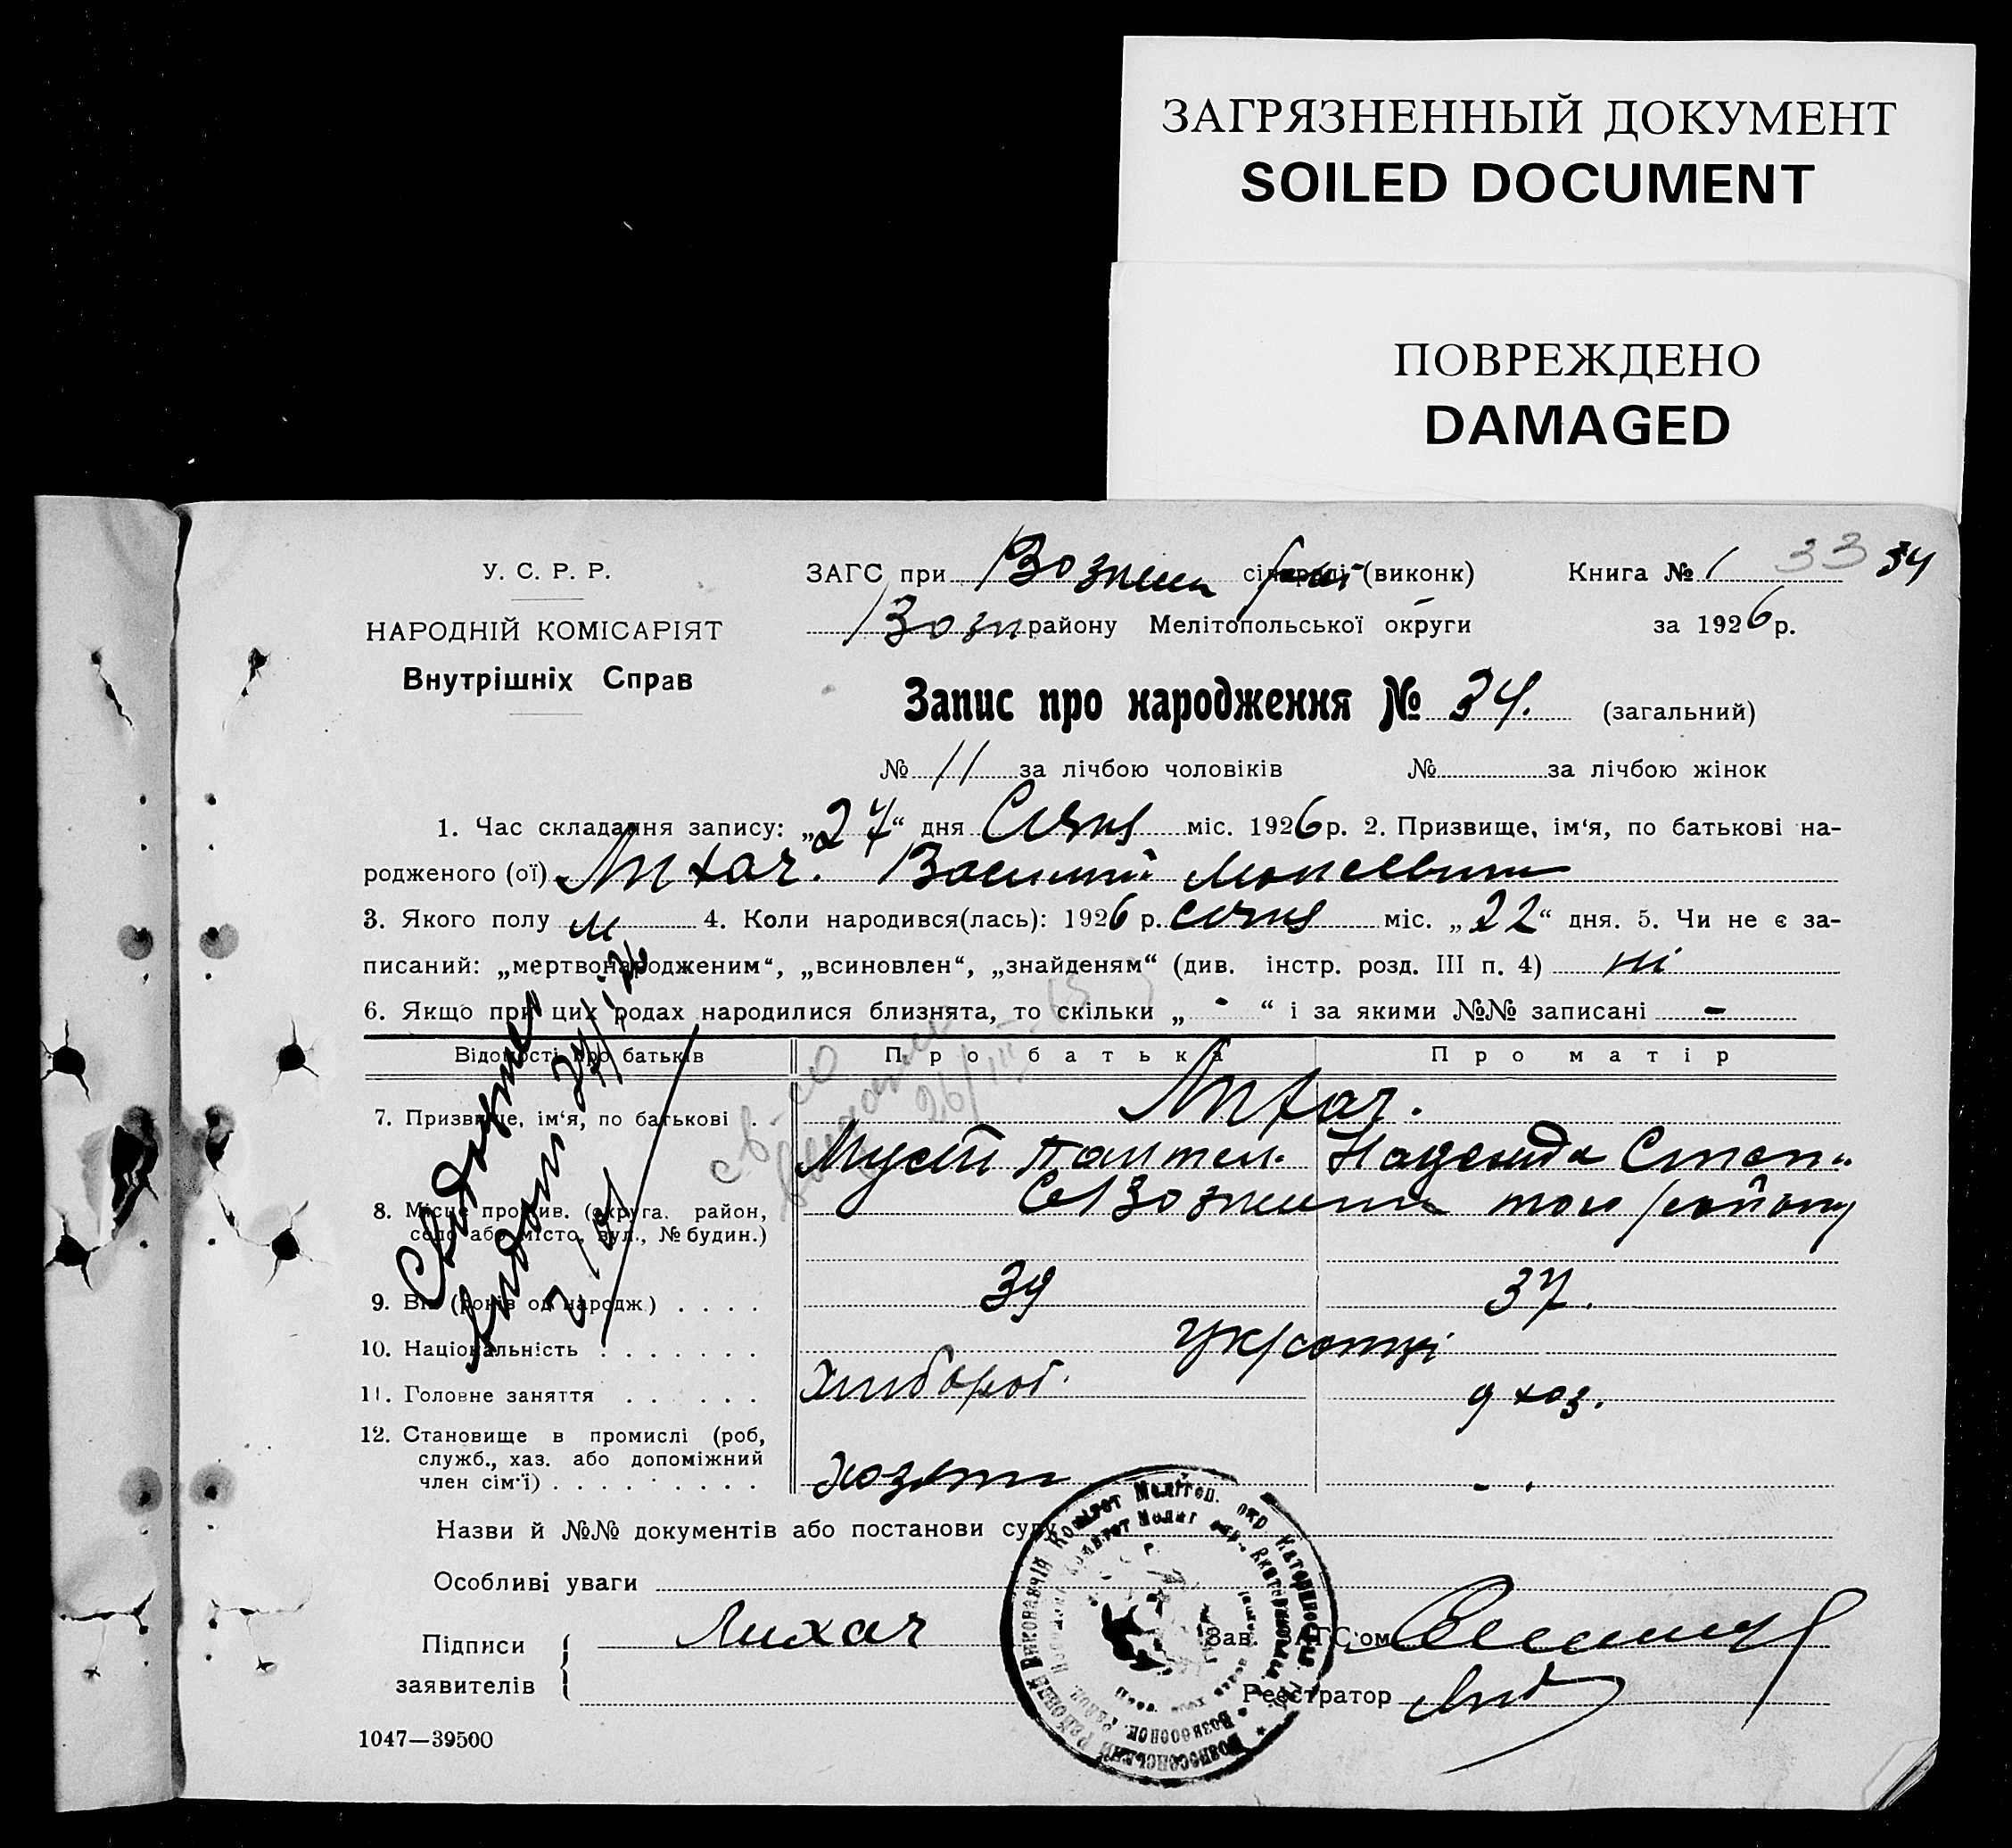 ЗАГРЯЗНЕННЫЙ ДОКУМЕНТ
SOILED DOCUMENT
ПОВРЕЖДЕНО
DAMAGED
У. С. Р. Р.
НАРОДНІЙ КОМІСАРІЯТ
Внутрішніх Справ
ЗАГС при Вознесен (виконк)
Возн району Мелітопольської округи
Книга № 1 33 34
за 1926 р.
Запис про народження № 34. (загальний)
№ 11 за лічбою чоловіків № за лічбою жінок
1. Час складання запису: „27“ дня Січня міс. 1926 р. 2. Призвище, ім‘я, по батькові на-
родженого (ої) Лихач. Василий Мойсеевич
3. Якого полу м 4. Коли народився(лась): 1926 р. січня міс. „22“ дня. 5. Чи не є за-
писаний: „мертвонародженим“, „всиновлен“, „знайденям“ (див. інстр. розд. III п. 4) ні
6. Якщо при цих родах народилися близнята, то скільки „ - “ і за якими №№ записані -
Відомості про батьків Про батька Про матір
7. Призвище, ім‘я, по батькові . Лихач.
Мусій Пантел. Надежда Степ..
8. Місце прожив. (округа. район, село або місто, вул., № будин.) того району
9. Вік (років од народж.) . . . . 39 37.
10. Національність . . . . . . . Українці
11. Головне заняття . . . . . . Хлібороб. д хоз.
12. Становище в промислі (роб,
служб., хаз. або допоміжний
член сім‘ї) . . . . . . . . . Хозяин -
Назви й №№ документів або постанови суду
Особливі уваги
Підписи заявителів Лихач
Зав. ЗАГС‘ом
Реєстратор
1047—39500